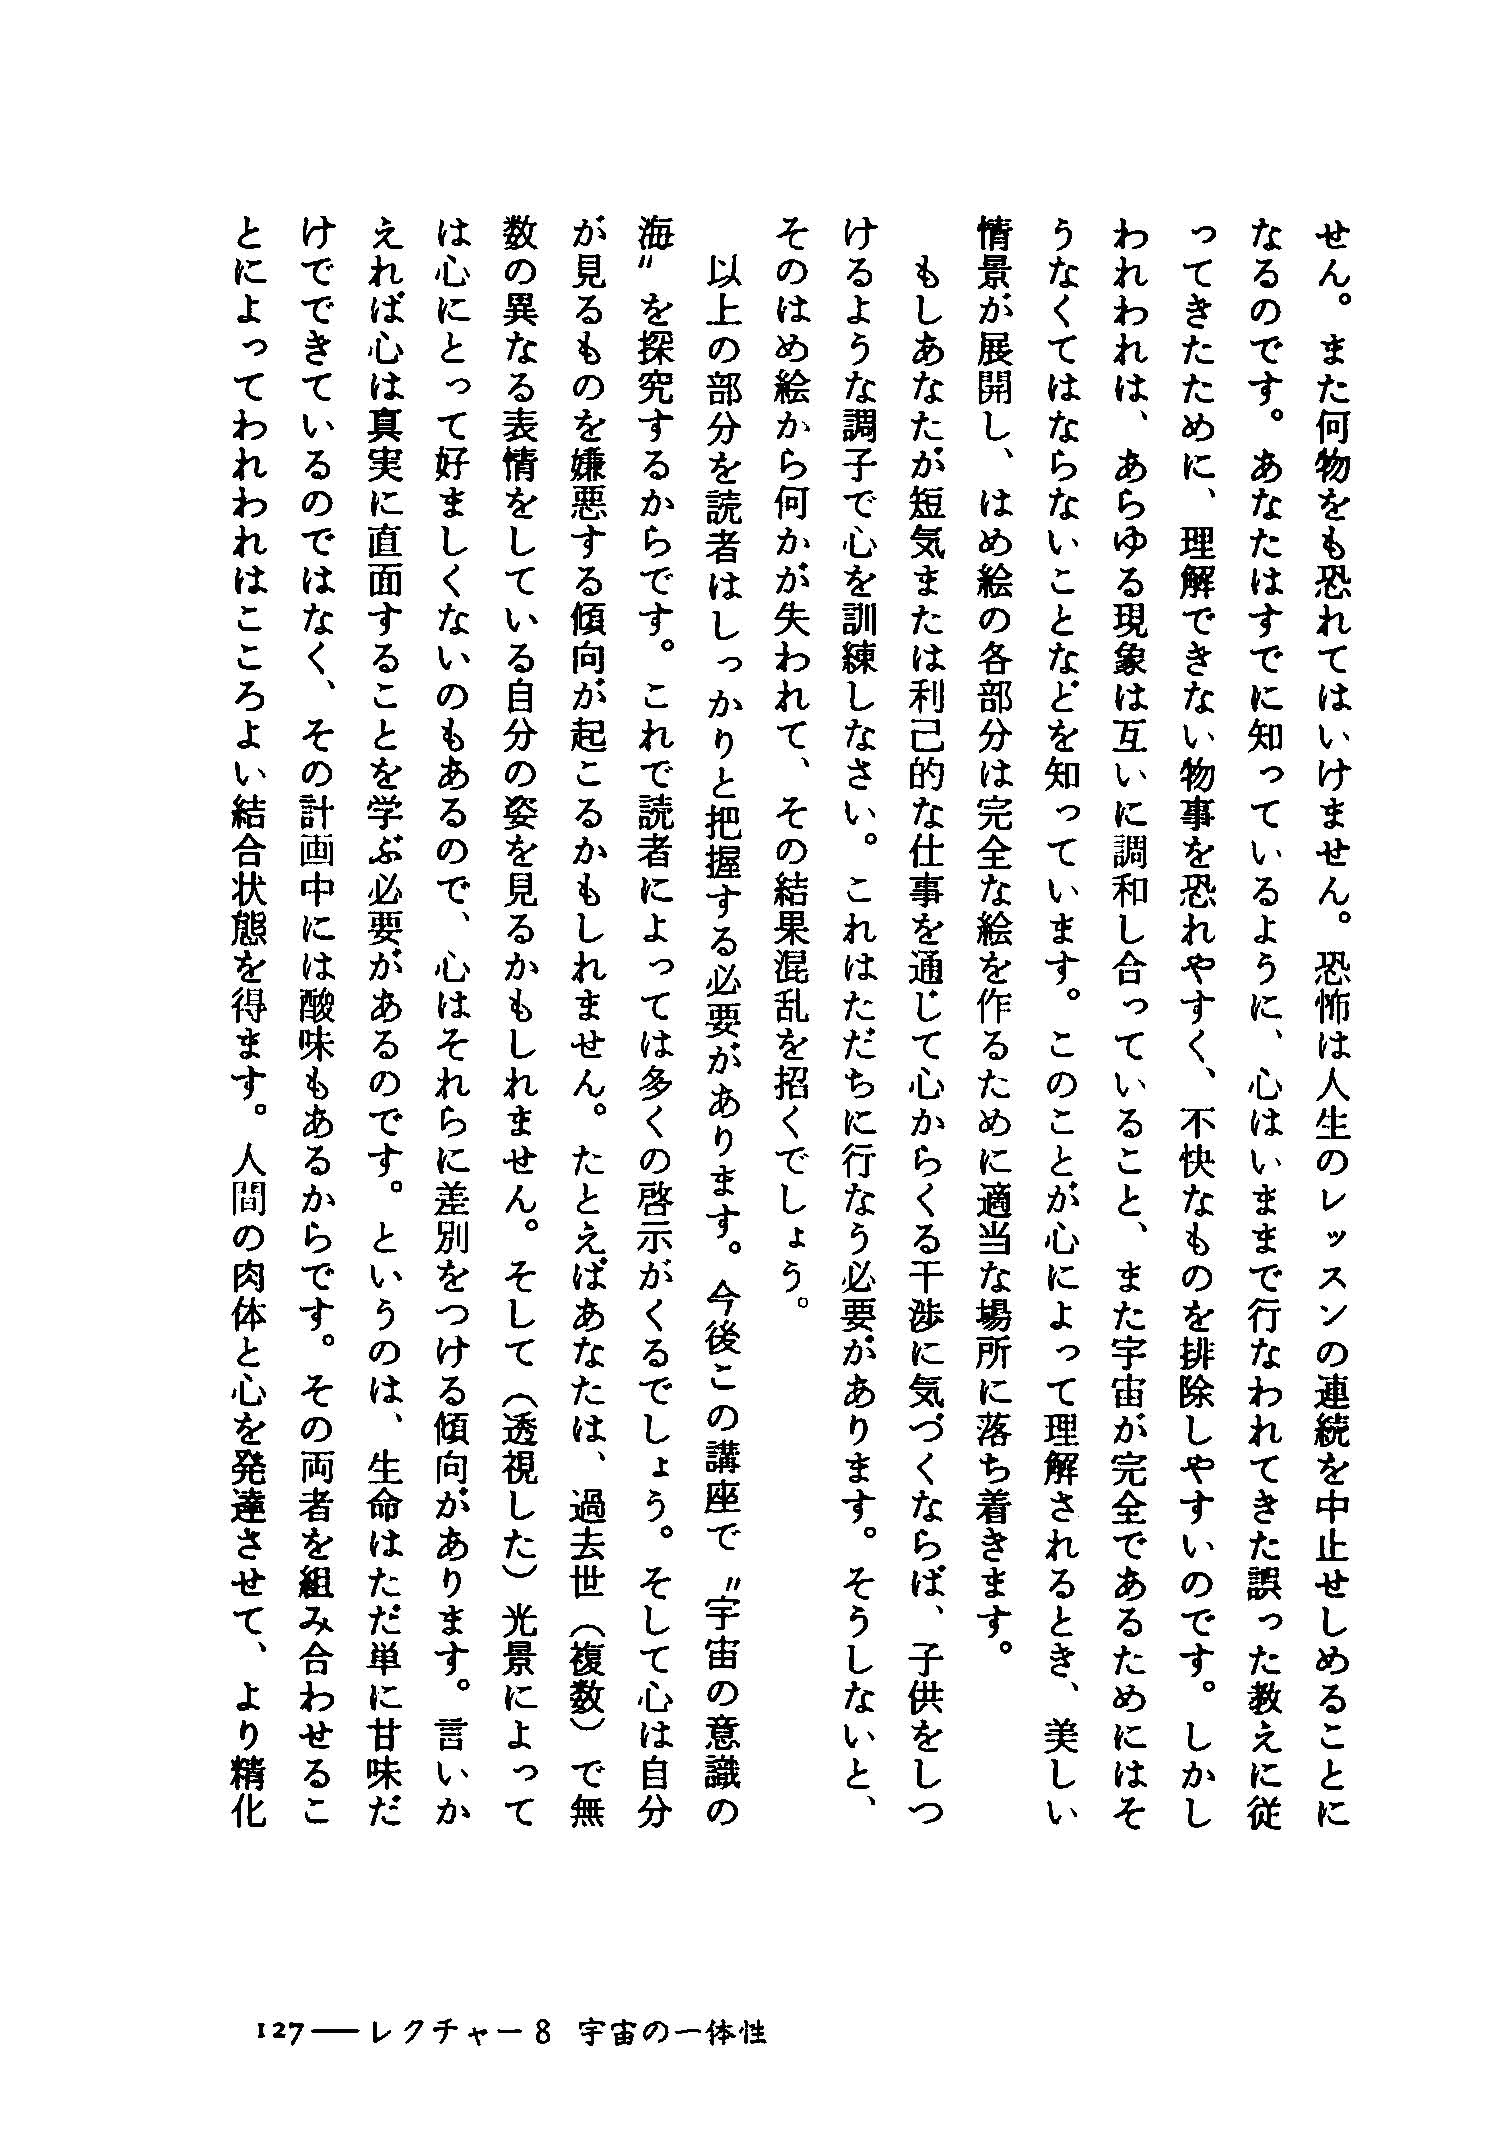 せん。また何物をも恐れてはいけません。恐怖は人生のレッスンの連続を中止せしめることに
なるのです。あなたはすでに知っているように、心はいままで行なわれてきた誤った教えに従
ってきたために、理解できない物事を恐れやすく、不快なものを排除しやすいのです。しかし
われわれは、あらゆる現象は互いに調和し合っていること、また宇宙が完全であるためにはそ
うなくてはならないことなどを知っています。このことが心によって理解されるとき、美しい
情景が展開し、はめ絵の各部分は完全な絵を作るために適当な場所に落ち着きます。
もしあなたが短気または利己的な仕事を通じて心からくる干渉に気づくならば、子供をしつ
けるような調子で心を訓練しなさい。これはただちに行なう必要があります。そうしないと、
そのはめ絵から何かが失われて、その結果混乱を招くでしょう。
以上の部分を読者はしっかりと把握する必要があります。今後この講座で〝宇宙の意識の
海〟を探究するからです。これで読者によっては多くの啓示がくるでしょう。そして心は自分
が見るものを嫌悪する傾向が起こるかもしれません。たとえばあなたは、過去世（複数）で無
数の異なる表情をしている自分の姿を見るかもしれません。そして（透視した）光景によって
は心にとって好ましくないのもあるので、心はそれらに差別をつける傾向があります。言いか
えれば心は真実に直面することを学ぶ必要があるのです。というのは、生命はただ単に甘味だ
けでできているのではなく、その計画中には酸味もあるからです。その両者を組み合わせるこ
とによってわれわれはこころよい結合状態を得ます。人間の肉体と心を発達させて、より精化
127——レクチャー8 宇宙の一体性